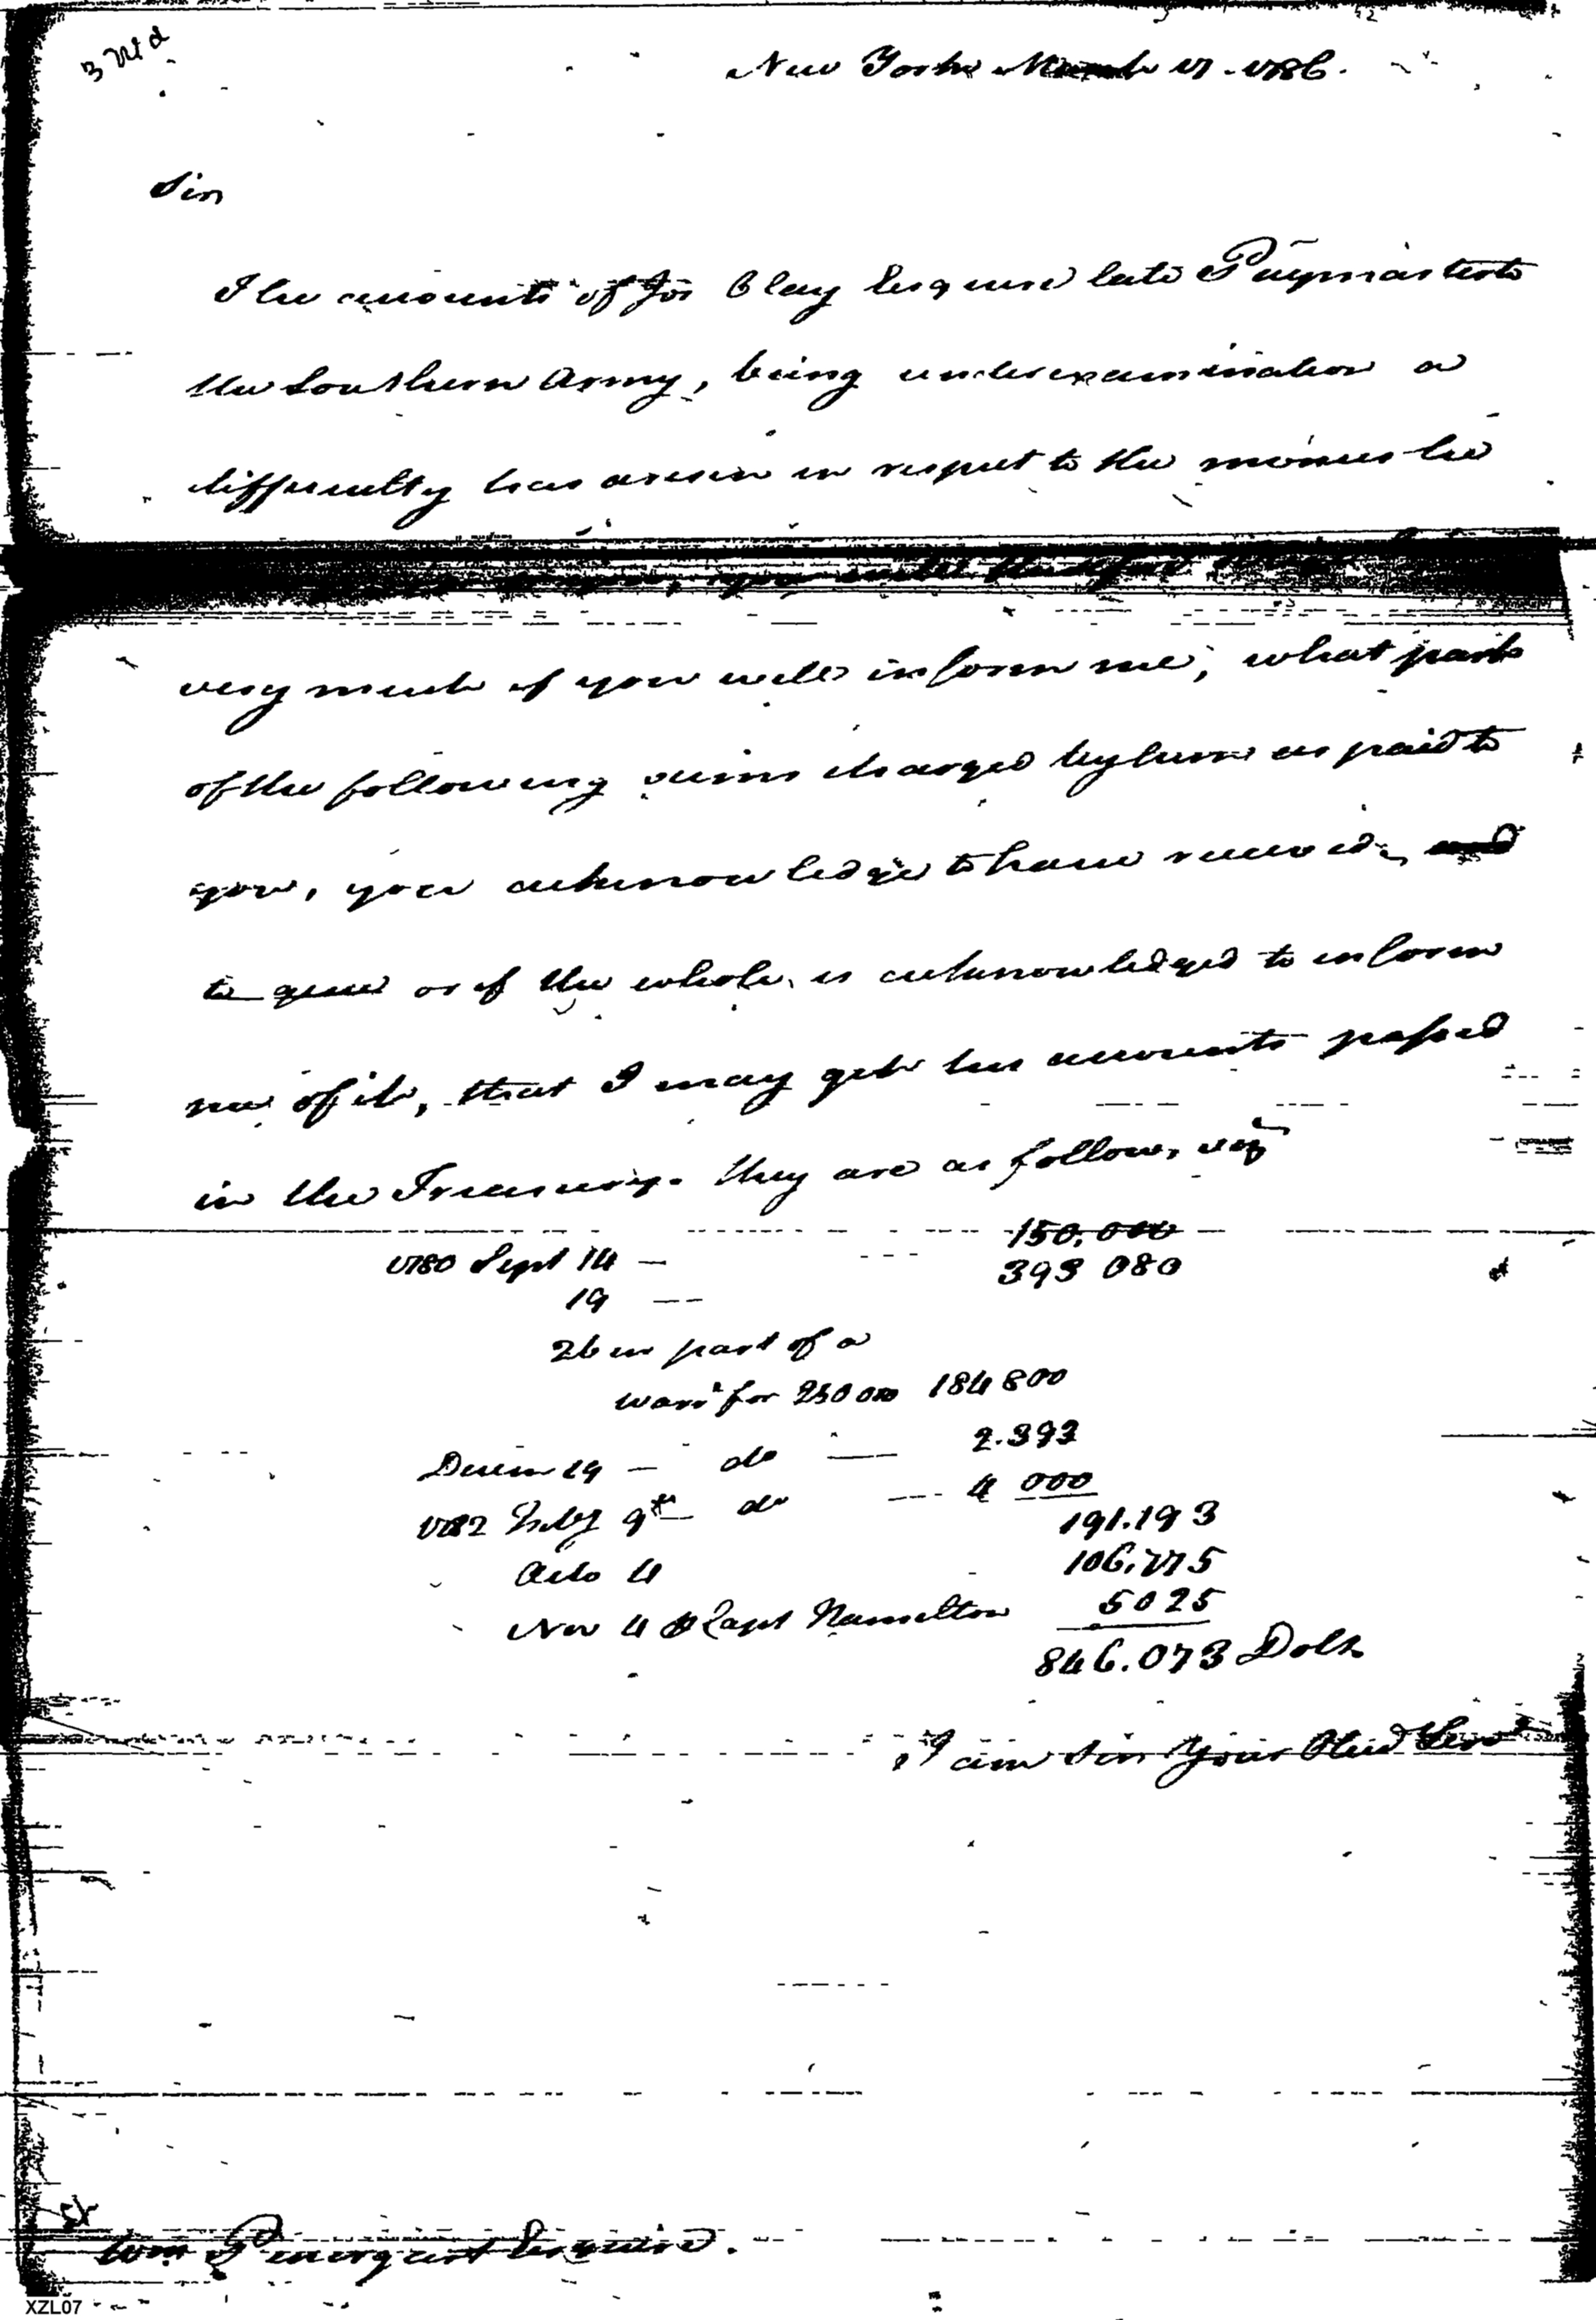 3 Md
New York March 17. 1786.
Sir
The accounts of Jos Clay Esquire late Paymaster to
the Southern Army, being under examination a
difficulty has arisen in respect to the monies he
you, you will
very much if you will inform me, what part
of the following sums charged by him as paid to
you, you acknowledge to have received, and
to give or if the whole, is acknowledged to inform
me of it, that I may get his accounts passed
in the Treasury. they are as follow, viz
150,000
1780 Sept 14 — --- 393 080
19 ---
26 in part of a
warrt for 250 000 184 800
Decem 29 — do — 2.393
1782 Feby 9th — do --- 4 000
191.193
Octo 4 106,775
Nov 4 Capt Hamelton 5025
846.073 Dolls
I am Sir Your Obed Servt
Wm Esquire.
XZL07